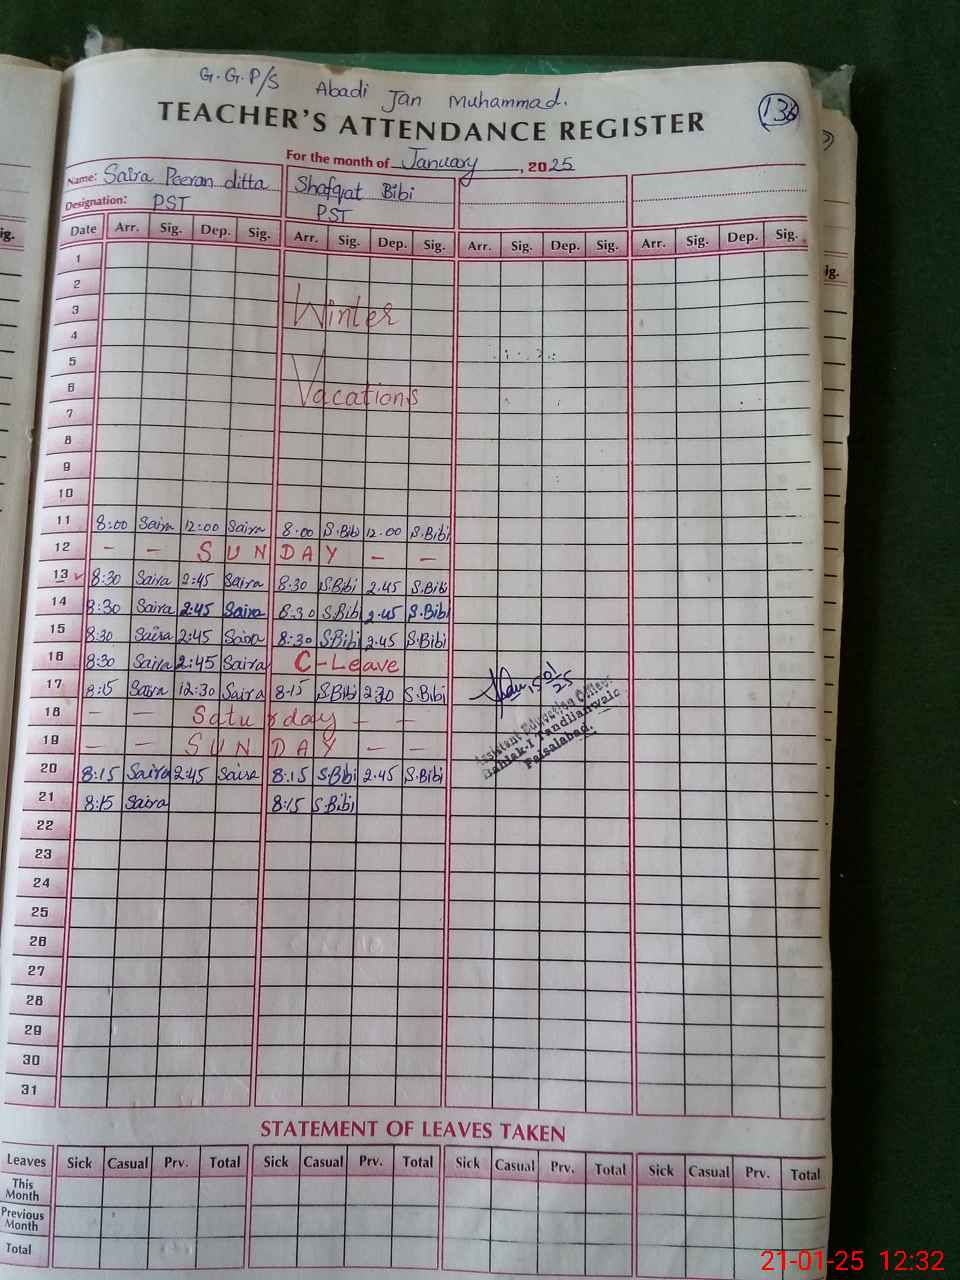 G.G.P/S Abadi Jan Muhammad.
TEACHER'S ATTENDANCE REGISTER
136
For the month of January, 2025
Name: Saira Peeran ditta Shafqat Bibi
Designation: PST PST
Date Arr. Sig. Dep. Sig. Arr. Sig. Dep. Sig. Arr. Sig. Dep. Sig. Arr. Sig. Dep. Sig.
1
2
3 Winter
4
5
6 Vacations
7
8
9
10
11 8:00 Saira 12:00 Saira 8:00 S.Bibi 12.00 S.Bibi
12 - - SUNDAY - -
13 8:30 Saira 2:45 Saira 8:30 S.Bibi 2.45 S.Bibi
14 8:30 Saira 2:45 Saira 8:30 S.Bibi 2.45 S.Bibi
15 8:30 Saira 2:45 Saira 8:30 S.Bibi 2.45 S.Bibi
16 8:30 Saira 2:45 Saira C-Leave
17 8:15 Saira 12:30 Saira 8:15 S.Bibi 2:30 S.Bibi
15 01 25
18 - - Saturday - -
19 - - SUNDAY - -
Assistant Education Officer
Tandlianwala
Faisalabad.
20 8:15 Saira 2:45 Saira 8:15 S.Bibi 2.45 S.Bibi
21 8:15 Saira 8:15 S.Bibi
22
23
24
25
26
27
28
29
30
31
STATEMENT OF LEAVES TAKEN
Leaves Sick Casual Prv. Total Sick Casual Prv. Total Sick Casual Prv. Total Sick Casual Prv. Total
This Month
Previous Month
Total
ig.
ig.
21-01-25 12:32